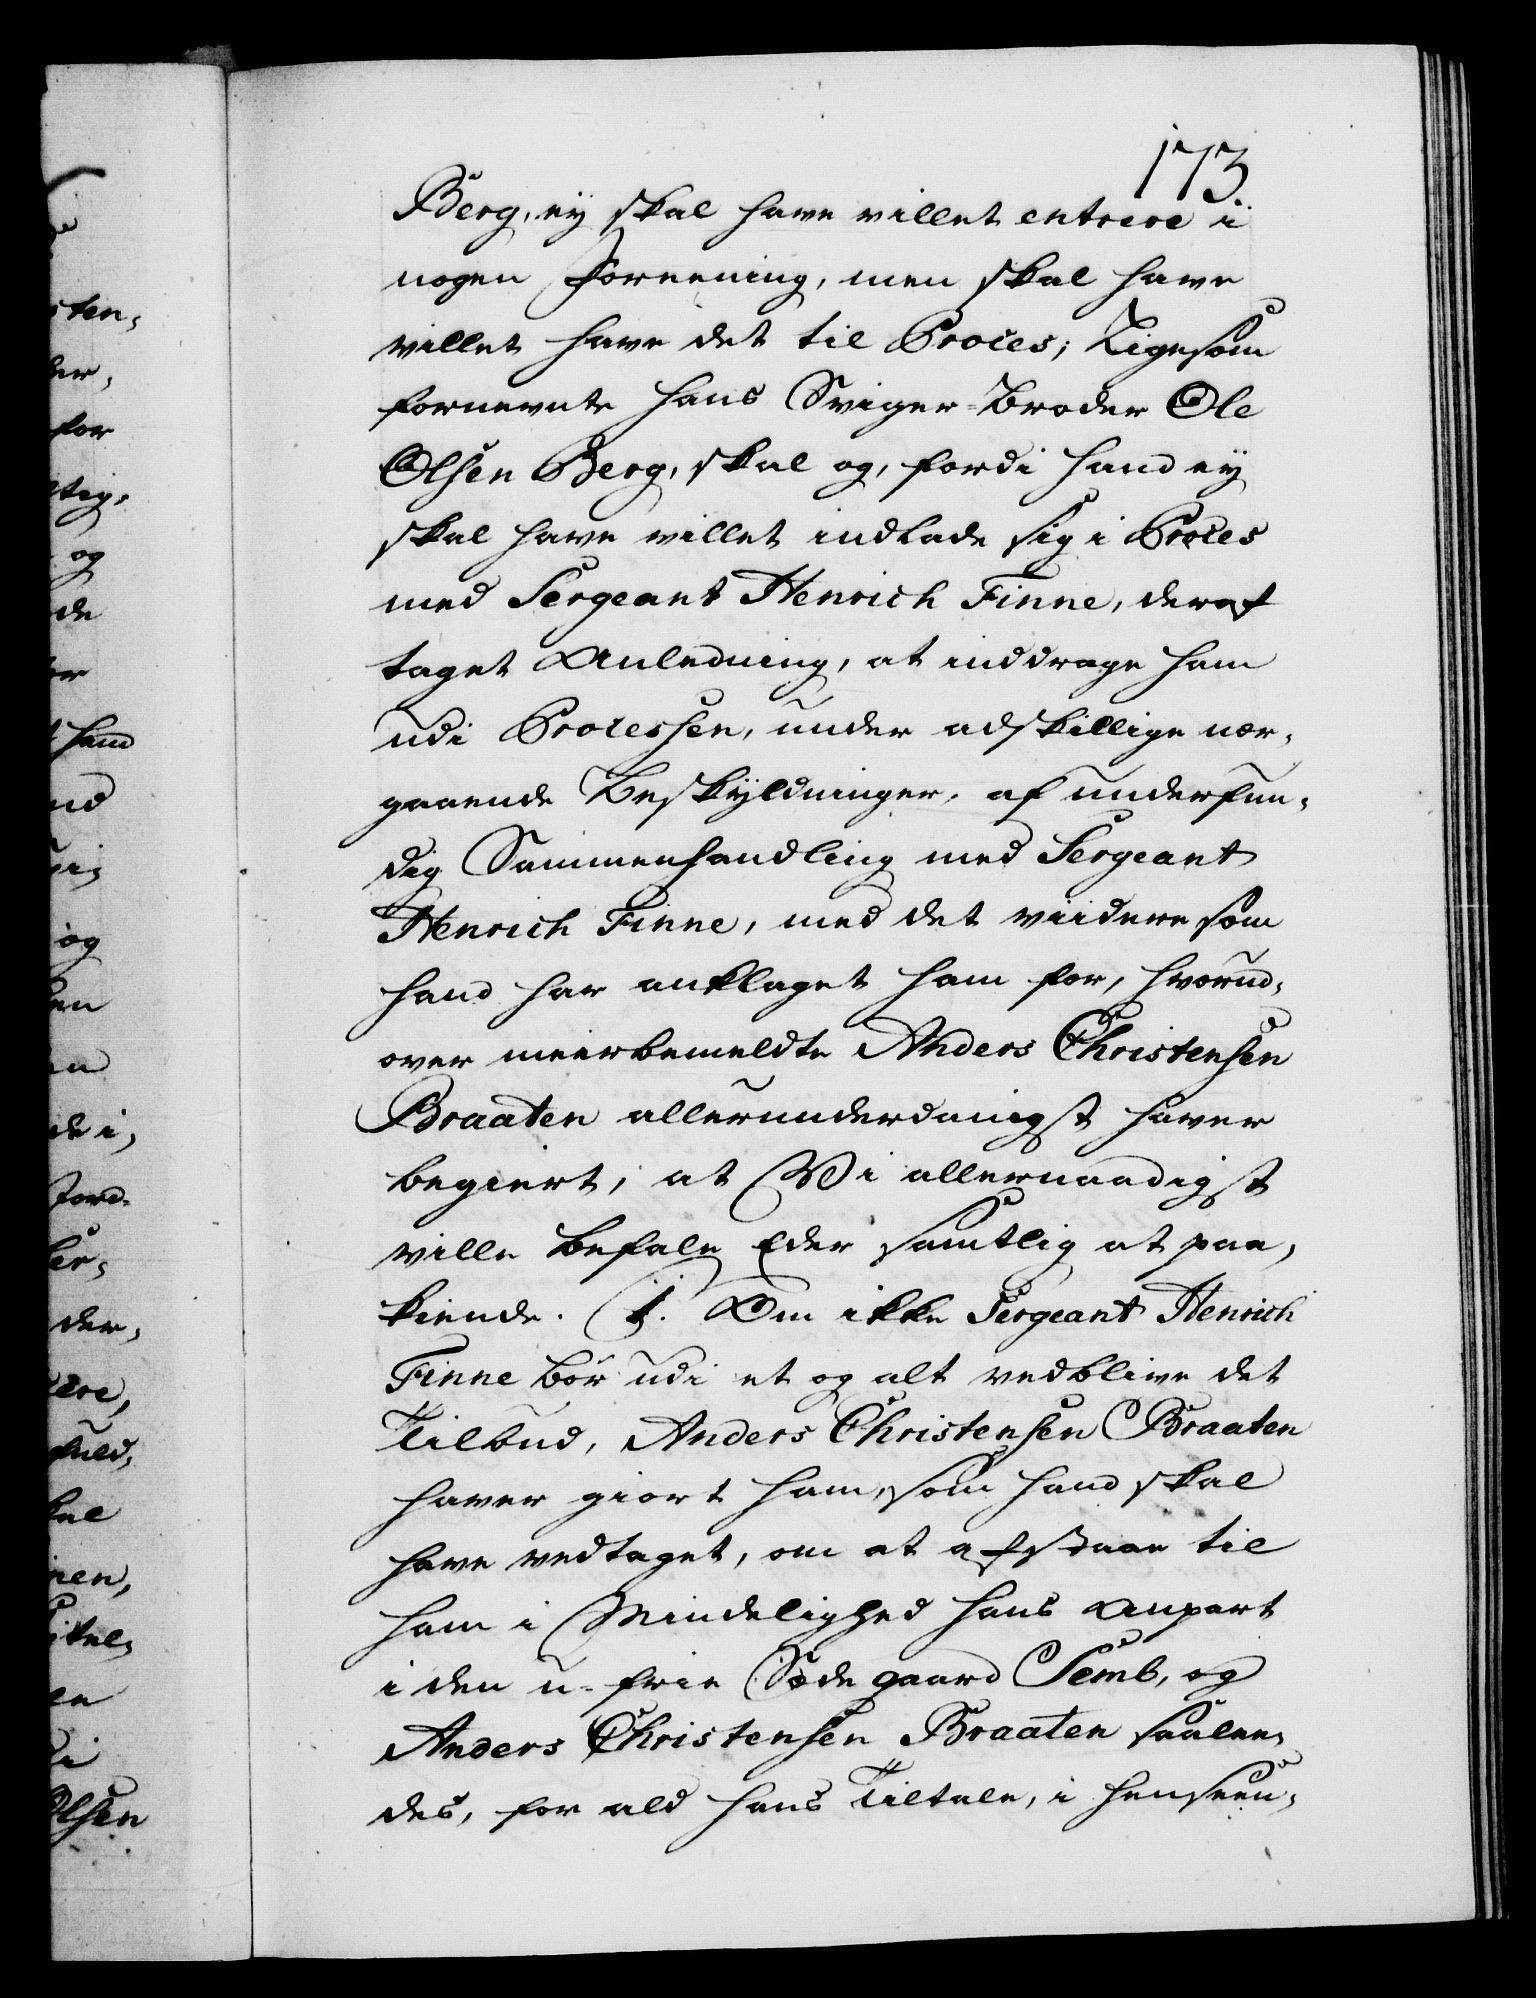 173
Berg, ey skal have villet entrere i
nogen Foreening, men skal have
villet have det til Proces; Ligesom
fornevnte hans Sviger-Broder Ole
Olsen Berg, skal og, fordi hand ey
skal have villet indlade sig i Proces
med Sergeant Henrich Finne, deraf
taget Anledning, at inddrage ham
udi Processen, under adskillige nær-
gaaende Beskyldninger, af underfun-
dig Sammenhandling med Sergeant
Henrich Finne, med det viidere som
hand har anklaget ham for, hvorud-
over meerbemeldte Anders Christensen
Braaten allerunderdanigst haver
begiert, at Vi allernaadigst
ville befale Eder samtlig at paa-
kiende. 1. Om ikke Sergeant Henrich
Finne bør udi et og alt vedblive det
Tilbud, Anders Christensen Braaten
haver giort ham, som hand skal
have vedtaget, om at afstaae til
ham i Mindelighed hans Anpart
i den u-frie Sæde gaard Semb, og
Anders Christensen Braaten saalee-
des, for ald hans Tiltale, i henseen-
sten,
der,
for
og
de
ham
nd
og
den
de i,
Jord-
der,
ere,
fuld,
kal
nen,
Olsen